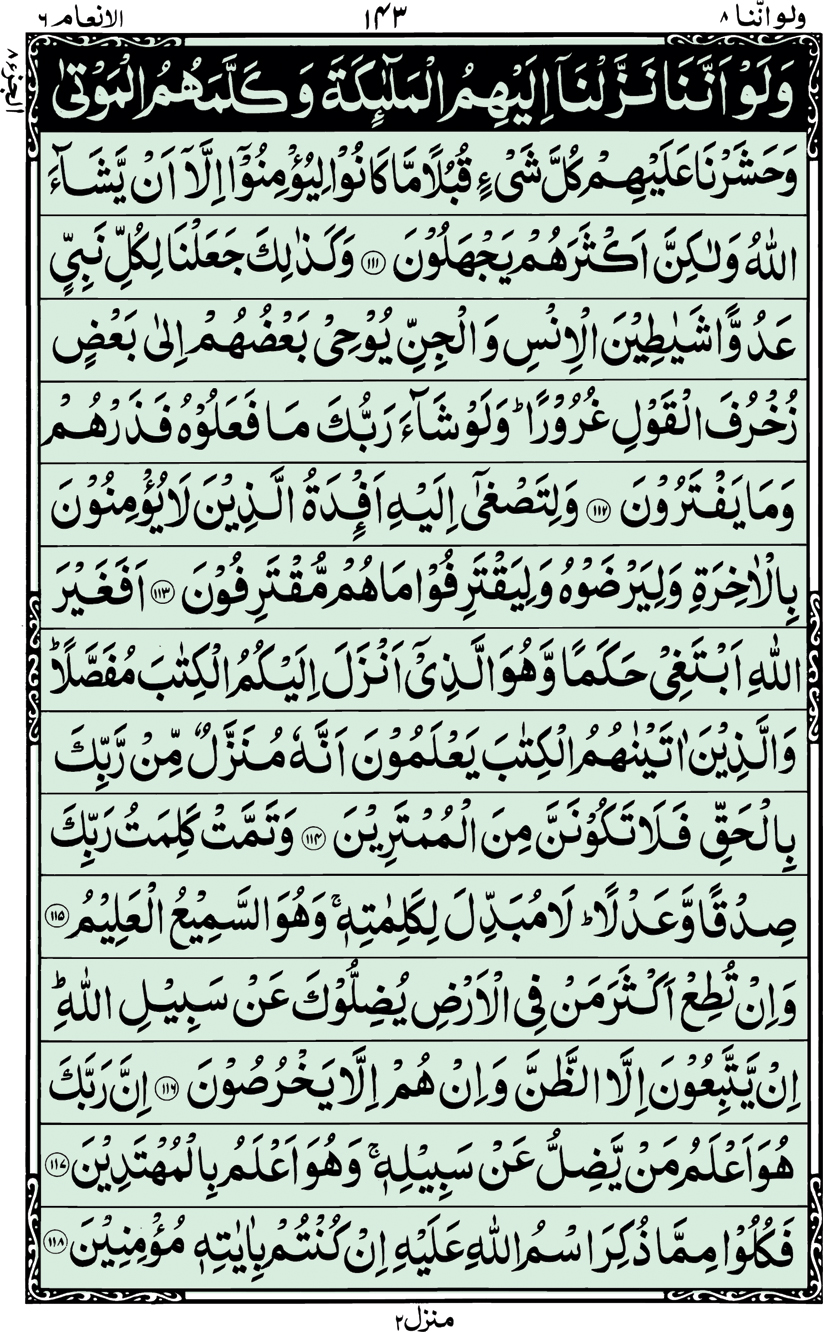 ولو اننا ٨
١٤٣
الانعام ٦
الجزء ٨
وَلَوْ اَنَّنَا نَزَّلْنَاۤ اِلَيْهِمُ الْمَلٰٓئِكَةَ وَ كَلَّمَهُمُ الْمَوْتٰى
وَحَشَرْنَا عَلَيْهِمْ كُلَّ شَیْءٍ قُبُلًا مَّا كَانُوْا لِيُؤْمِنُوْۤا اِلَّاۤ اَنْ يَّشَآءَ
اللّٰهُ وَلٰكِنَّ اَكْثَرَهُمْ يَجْهَلُوْنَ ﴿١١١﴾ وَكَذٰلِكَ جَعَلْنَا لِكُلِّ نَبِیٍّ
عَدُوًّا شَيٰطِيْنَ الْاِنْسِ وَ الْجِنِّ يُوْحِیْ بَعْضُهُمْ اِلٰى بَعْضٍ
زُخْرُفَ الْقَوْلِ غُرُوْرًا ؕ وَلَوْ شَآءَ رَبُّكَ مَا فَعَلُوْهُ فَذَرْهُمْ
وَمَا يَفْتَرُوْنَ ﴿١١٢﴾ وَلِتَصْغٰۤى اِلَيْهِ اَفْـِٕدَةُ الَّذِيْنَ لَا يُؤْمِنُوْنَ
بِالْاٰخِرَةِ وَلِيَرْضَوْهُ وَلِيَقْتَرِفُوْا مَا هُمْ مُّقْتَرِفُوْنَ ﴿١١٣﴾ اَفَغَيْرَ
اللّٰهِ اَبْتَغِیْ حَكَمًا وَّهُوَ الَّذِیْۤ اَنْزَلَ اِلَيْكُمُ الْكِتٰبَ مُفَصَّلًا ؕ
وَالَّذِيْنَ اٰتَيْنٰهُمُ الْكِتٰبَ يَعْلَمُوْنَ اَنَّهٗ مُنَزَّلٌ مِّنْ رَّبِّكَ
بِالْحَقِّ فَلَا تَكُوْنَنَّ مِنَ الْمُمْتَرِيْنَ ﴿١١٤﴾ وَتَمَّتْ كَلِمَتُ رَبِّكَ
صِدْقًا وَّعَدْلًا ؕ لَا مُبَدِّلَ لِكَلِمٰتِهٖ ۚ وَهُوَ السَّمِيْعُ الْعَلِيْمُ ﴿١١٥﴾
وَاِنْ تُطِعْ اَكْثَرَ مَنْ فِی الْاَرْضِ يُضِلُّوْكَ عَنْ سَبِيْلِ اللّٰهِ ؕ
اِنْ يَّتَّبِعُوْنَ اِلَّا الظَّنَّ وَاِنْ هُمْ اِلَّا يَخْرُصُوْنَ ﴿١١٦﴾ اِنَّ رَبَّكَ
هُوَ اَعْلَمُ مَنْ يَّضِلُّ عَنْ سَبِيْلِهٖ ۚ وَهُوَ اَعْلَمُ بِالْمُهْتَدِيْنَ ﴿١١٧﴾
فَكُلُوْا مِمَّا ذُكِرَ اسْمُ اللّٰهِ عَلَيْهِ اِنْ كُنْتُمْ بِاٰيٰتِهٖ مُؤْمِنِيْنَ ﴿١١٨﴾
منزل ٢